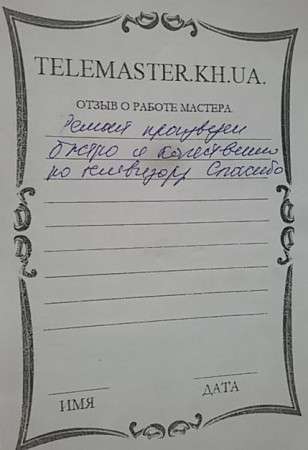 TELEMASTER.KH.UA.
ОТЗЫВ О РАБОТЕ МАСТЕРА.
Ремонт произведен
быстро и качественно
по телевизору Спасибо
ИМЯ
ДАТА